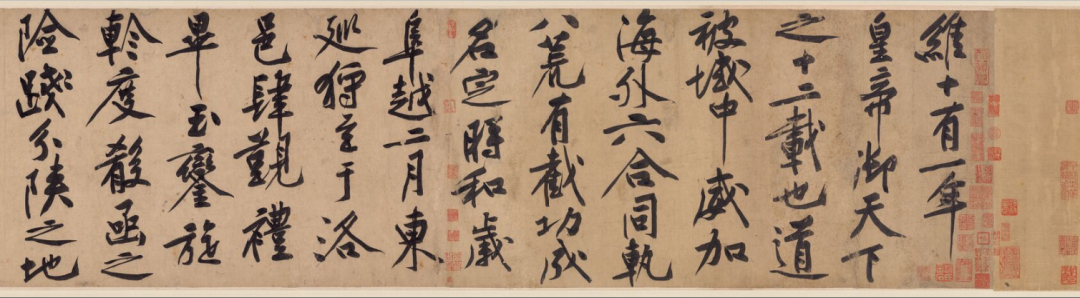 維十有一年
皇帝御天下
之十二載也道
被域中威加
海外六合同軌
八荒有截功成
名定時和歲
阜越二月東
巡狩至于洛
邑肆覲禮
畢玉鑾旋
軫度殽函之
險踐分陝之地